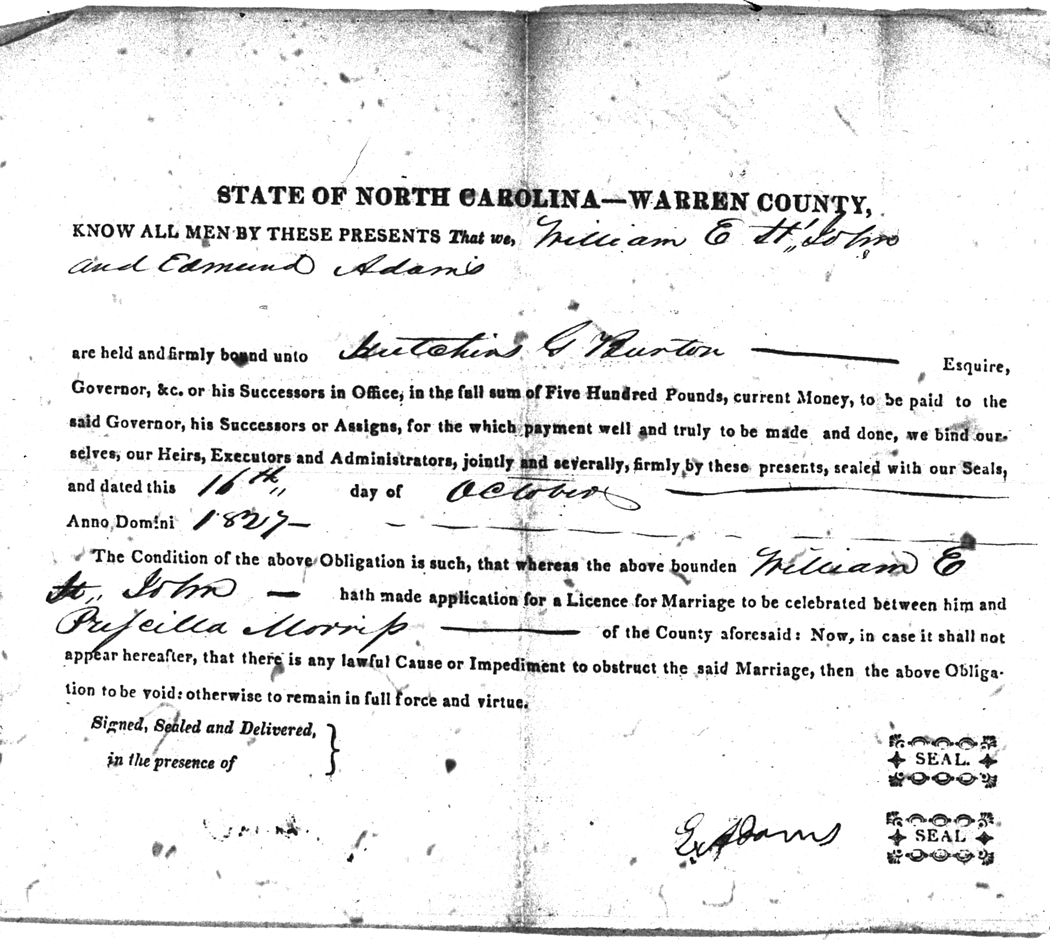 STATE OF NORTH CAROLINA—WARREN COUNTY,
KNOW ALL MEN BY THESE PRESENTS That we, William E St,, John
and Edmund Adams
are held and firmly bound unto Hutchins G Burton — Esquire,
Governor, &c. or his Successors in Office, in the full sum of Five Hundred Pounds, current Money, to be paid to the
said Governor, his Successors or Assigns, for the which payment well and truly to be made and done, we bind our-
selves, our Heirs, Executors and Administrators, jointly and severally, firmly by these presents, sealed with our Seals,
and dated this 16th,, day of October —
Anno Domini 1827—
The Condition of the above Obligation is such, that whereas the above bounden William E
St,, John — hath made application for a Licence for Marriage to be celebrated between him and
Priscilla Morriss — of the County aforesaid: Now, in case it shall not
appear hereafter, that there is any lawful Cause or Impediment to obstruct the said Marriage, then the above Obliga-
tion to be void: otherwise to remain in full force and virtue.
Signed, Sealed and Delivered,
in the presence of
SEAL.
E. Adams SEAL